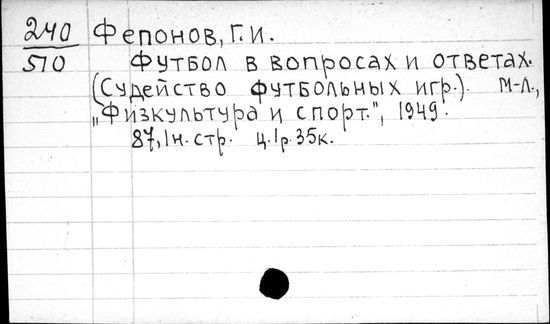 240 Фепонов, Г.И.
510 Футбол в вопросах и ответах.
(Судейство футбольных игр.). М-Л.,
„Физкультура и спорт.", 1949.
87, 1н. стр. ц. 1р. 35к.